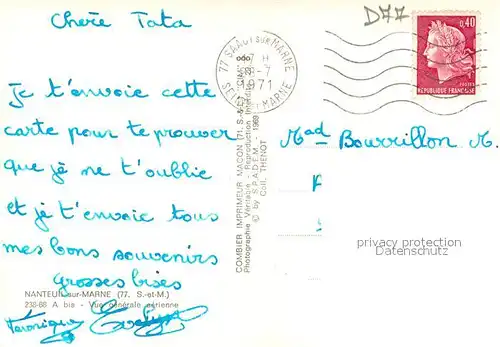 Chère Tata
Je t'envoie cette
carte pour te prouver
que je ne t'oublie
et je t'envoie tous
mes bons souvenirs
grosses bises
NANTEUIL-sur-MARNE (77. S.-et-M.)
238-88 A bis - Vue générale aérienne
Véronique Evelyne
COMBIER IMPRIMEUR MACON (71. S.-et-L.)
Photographie Véritable Reproduction Interdite
© by S.P.A.D.E.M. - 1969
Coll. THENOT
77 SAACY SUR MARNE
7 H
28-7
1971
SEINE ET MARNE
D77
0,40
POSTES
REPUBLIQUE FRANÇAISE
Mad Bourrillon M.
privacy protection
Datenschutz